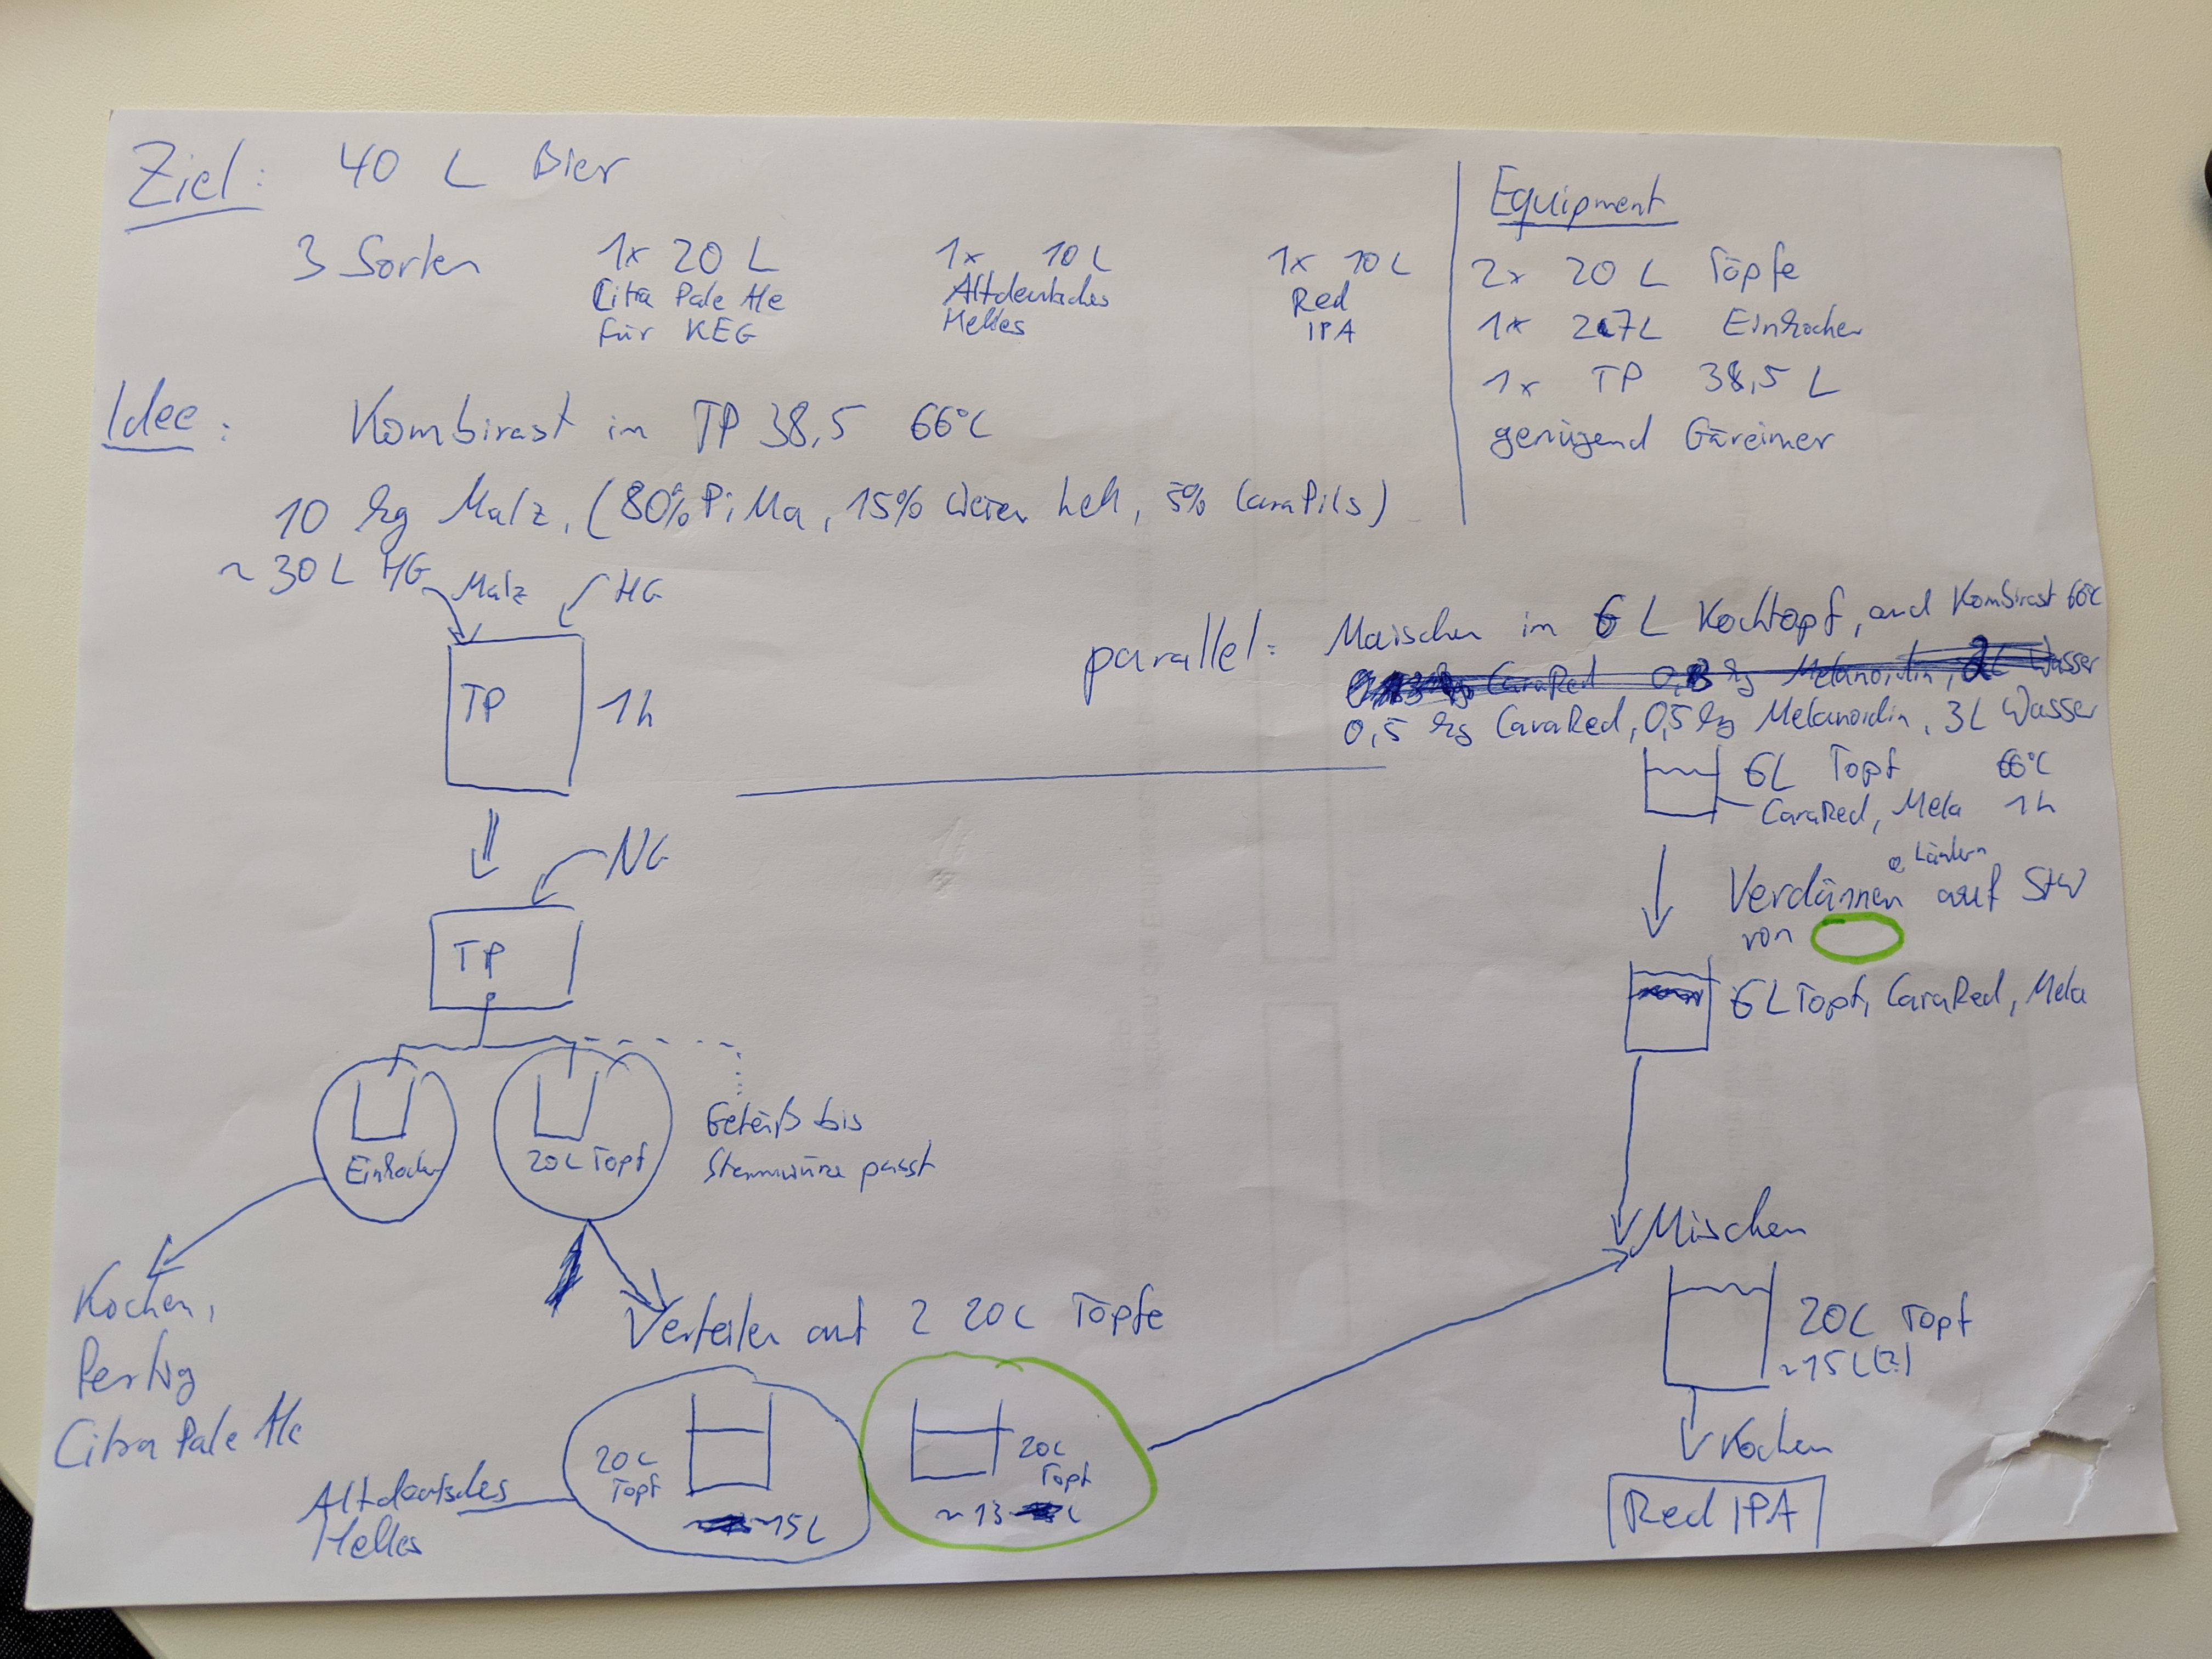 Ziel: 40 L Bier
3 Sorten 1x 20 L 1x 10 L 1x 10 L
Citra Pale Ale Altdeutsches Red
für KEG Helles IPA
Equipment
2x 20 L Töpfe
1x 27L Einkocher
1x TP 38,5 L
genügend Gäreimer
Idee: Kombirast in TP 38,5 66°C
10 kg Malz, (80% PiMa, 15% Weizen hell, 5% CaraPils)
~ 30 L HG
Malz HG
TP 1h
NG
TP
Einkocher
20L Topf
Geteilt bis
Stammwürze passt
Kochen,
Fertig
Citra Pale Ale
Verteilen auf 2 20L Töpfe
20L
Topf
~15L
Altdeutsches
Helles
20L
Topf
~13 L
parallel: Maischen in 6 L Kochtopf, auch Kombirast 66°C
CaraRed 0,3 kg Melanoidin, 2L Wasser
0,5 kg CaraRed, 0,5 kg Melanoidin, 3L Wasser
6L Topf 66°C
CaraRed, Mela 1h
Läutern
Verdünnen auf StW
von
6L Topf, CaraRed, Mela
Mischen
20L Topf
~15L(?)
Kochen
Red IPA